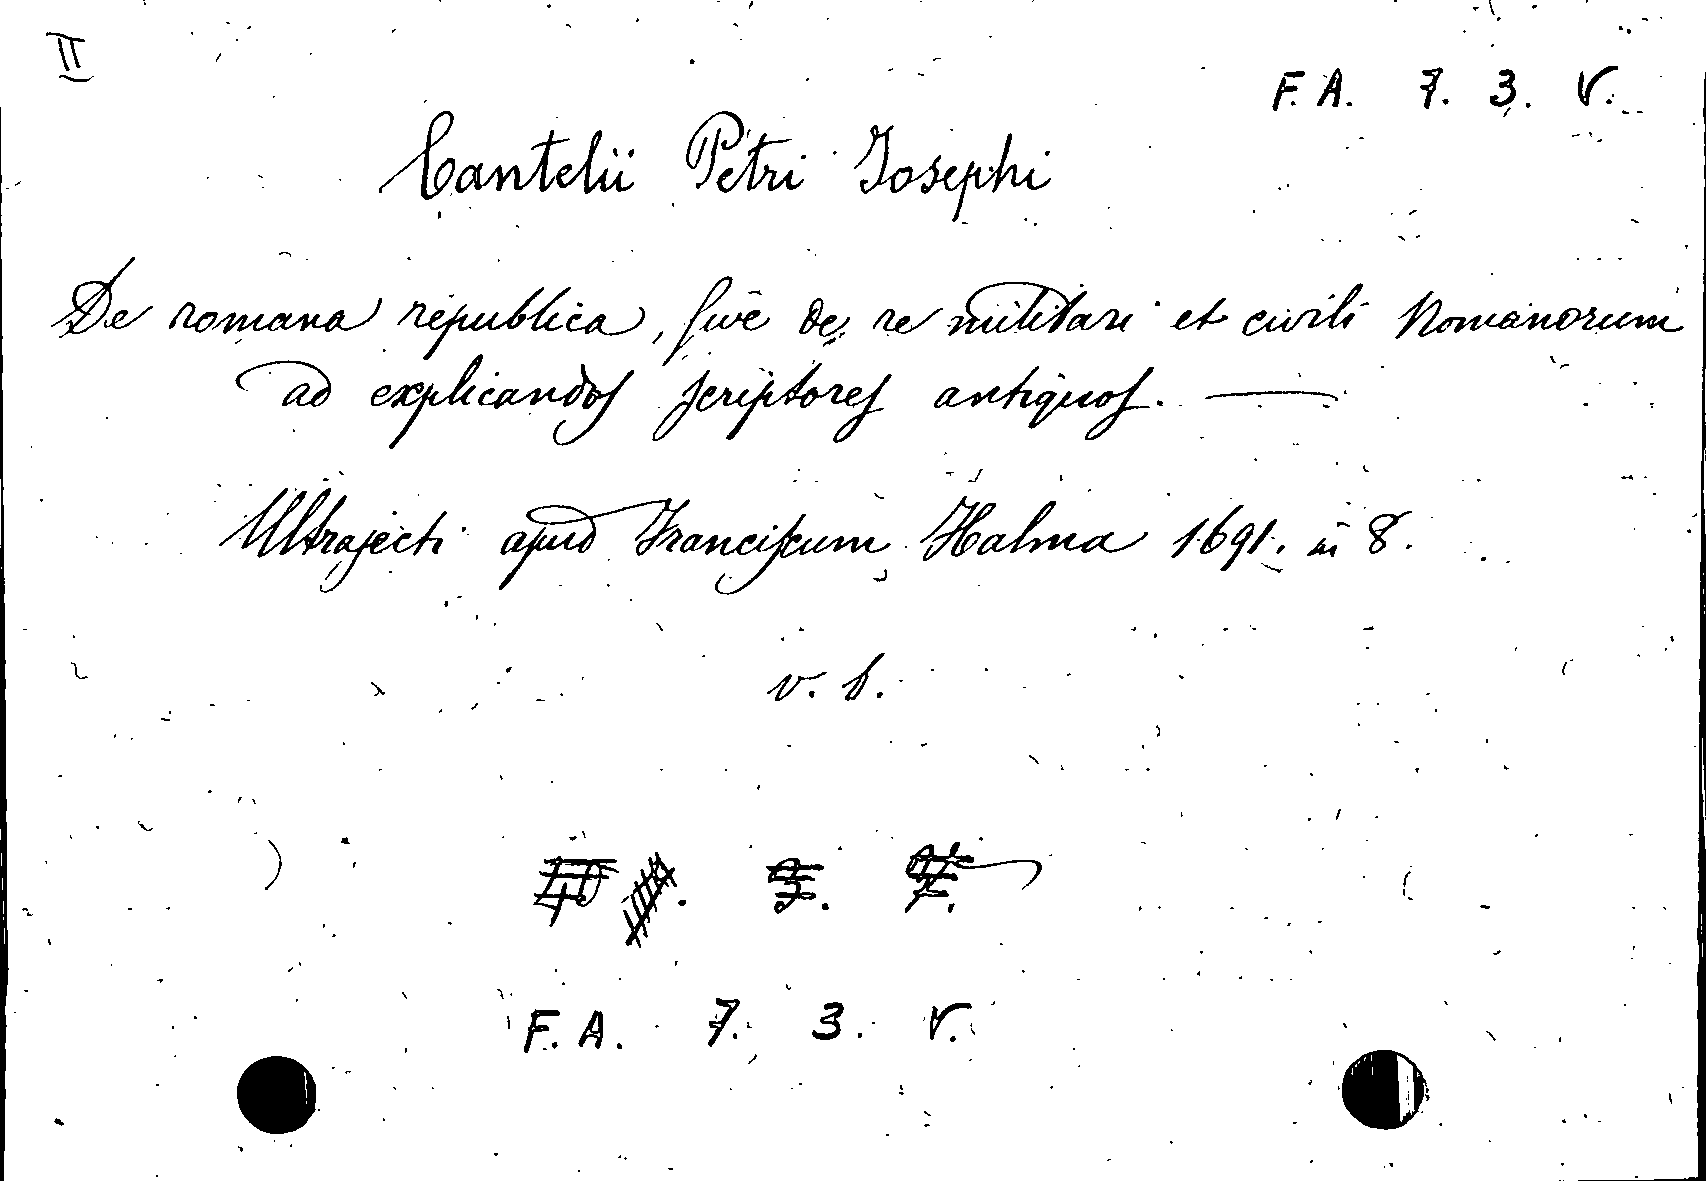 II
F. A. 7. 3. V.
Cantelii Petri Josephi
De romana republica, sive de re militari et civili Romanorum
ad explicandos scriptores antiquos. —
Ultrajecti apud Franciscum Halma 1691. in 8.
v. b.
F. A. 7. 3. V.